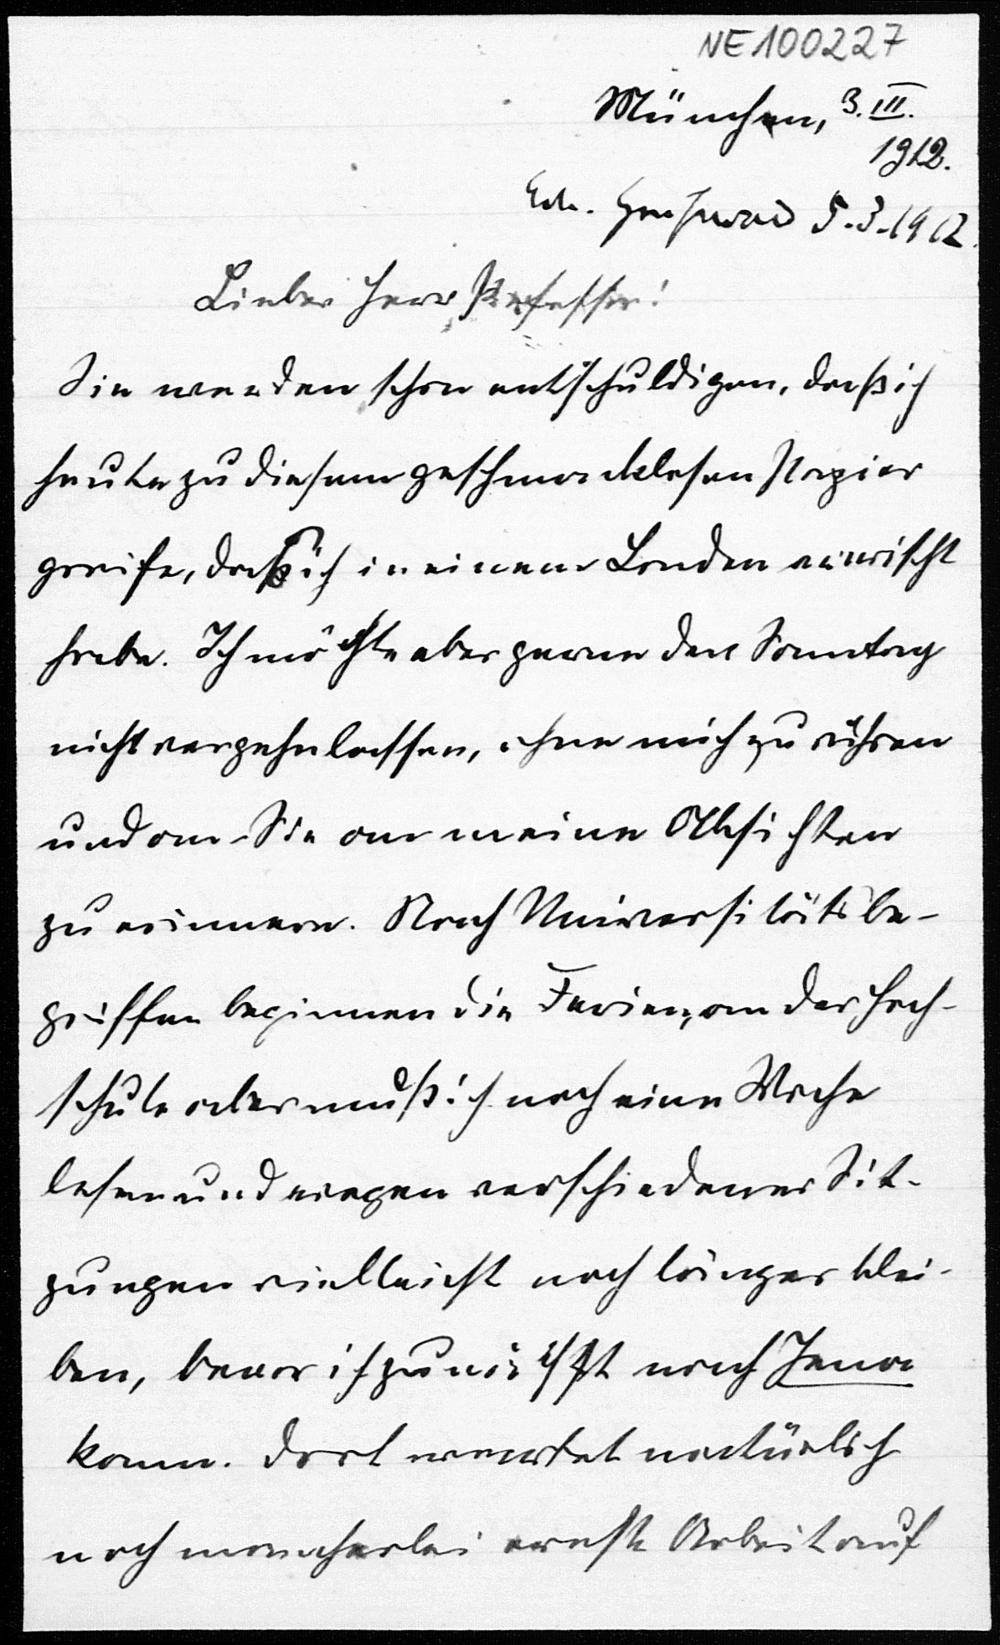 NE100227
München, 3. III.
1912.
5.3.1912.
Lieber Herr Professor!
Sie werden schon entschuldigen, daß ich
heute zu diesem geschmacklosen Papier
greife, das ich in einem Laden erwischt
habe. Ich möchte aber gerne den Sonntag
nicht vergehn lassen, ohne mich zu rühren
und an Sie an meine Absichten
zu erinnern. Nach Universitätsbe-
griffen beginnen die Ferien, an der Hoch-
schule aber muß ich noch eine Woche
lesen und wegen verschiedener Sit-
zungen vielleicht noch länger blei-
ben, bevor ich zunächst nach Jena
kann. Dort wartet natürlich
noch mancherlei ernste Arbeit auf